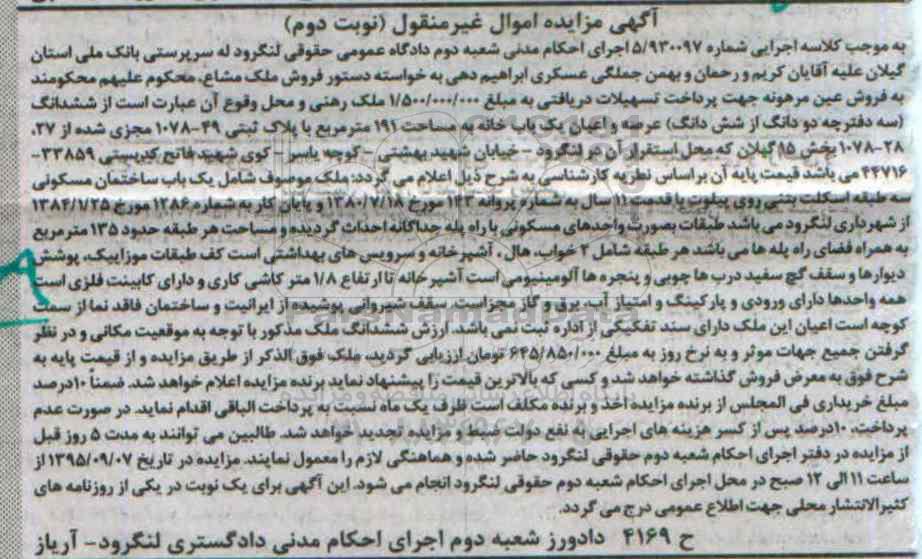 آگهی مزایده اموال غیرمنقول (نوبت دوم)
به موجب کلاسه اجرایی شماره ۵/۹۳۰۰۹۷ اجرای احکام مدنی شعبه دوم دادگاه عمومی حقوقی لنگرود له سرپرستی بانک ملی استان
گیلان علیه آقایان کریم و رحمان و بهمن جملگی عسکری ابراهیم دهی به خواسته دستور فروش ملک مشاع، محکوم علیهم محکومند
به فروش عین مرهونه جهت پرداخت تسهیلات دریافتی به مبلغ ۱/۵۰۰/۰۰۰/۰۰۰ ملک رهنی و محل وقوع آن عبارت است از ششدانگ
(سه دفترچه دو دانگ از شش دانگ) عرصه و اعیان یک باب خانه به مساحت ۱۹۱ مترمربع با پلاک ثبتی ۴۹-۱۰۷۸ مجزی شده از ۲۷،
۲۸-۱۰۷۸ بخش ۱۵ گیلان که محل استقرار آن در لنگرود - خیابان شهید بهشتی - کوچه یاسر - کوی شهید فاتح کدپستی ۳۳۸۵۹-
۴۴۷۱۶ می باشد قیمت پایه آن براساس نظریه کارشناسی به شرح ذیل اعلام می گردد: ملک موصوف شامل یک باب ساختمان مسکونی
سه طبقه اسکلت بتنی روی پیلوت با قدمت ۱۱ سال به شماره پروانه ۱۴۳ مورخ ۱۳۸۰/۷/۱۸ و پایان کار به شماره ۱۲۸۶ مورخ ۱۳۸۴/۷/۲۵
از شهرداری لنگرود می باشد طبقات بصورت واحدهای مسکونی با راه پله جداگانه احداث گردیده و مساحت هر طبقه حدود ۱۳۵ مترمربع
به همراه فضای راه پله ها می باشد هر طبقه شامل ۲ خواب، هال، آشپزخانه و سرویس های بهداشتی است کف طبقات موزاییک، پوشش
دیوارها و سقف گچ سفید درب ها چوبی و پنجره ها آلومینیومی است آشپزخانه تا ارتفاع ۱/۸ متر کاشی کاری و دارای کابینت فلزی است
همه واحدها دارای ورودی و پارکینگ و امتیاز آب، برق و گاز مجزاست. سقف شیروانی پوشیده از ایرانیت و ساختمان فاقد نما از سمت
کوچه است اعیان این ملک دارای سند تفکیکی از اداره ثبت نمی باشد. ارزش ششدانگ ملک مذکور با توجه به موقعیت مکانی و در نظر
گرفتن جمیع جهات موثر و به نرخ روز به مبلغ ۶۴۵/۸۵۰/۰۰۰ تومان ارزیابی گردید، ملک فوق الذکر از طریق مزایده و از قیمت پایه به
شرح فوق به معرض فروش گذاشته خواهد شد و کسی که بالاترین قیمت را پیشنهاد نماید برنده مزایده اعلام خواهد شد. ضمنا ۱۰درصد
مبلغ خریداری فی المجلس از برنده مزایده اخذ و برنده مکلف است ظرف یک ماه نسبت به پرداخت الباقی اقدام نماید. در صورت عدم
پرداخت، ۱۰درصد پس از کسر هزینه های اجرایی به نفع دولت ضبط و مزایده تجدید خواهد شد. طالبین می توانند به مدت ۵ روز قبل
از مزایده در دفتر اجرای احکام شعبه دوم حقوقی لنگرود حاضر شده و هماهنگی لازم را معمول نمایند. مزایده در تاریخ ۱۳۹۵/۰۹/۰۷ از
ساعت ۱۱ الی ۱۲ صبح در محل اجرای احکام شعبه دوم حقوقی لنگرود انجام می شود. این آگهی برای یک نوبت در یکی از روزنامه های
کثیرالانتشار محلی جهت اطلاع عمومی درج می گردد.
ح ۴۱۶۹ دادورز شعبه دوم اجرای احکام مدنی دادگستری لنگرود- آریاز
ParsNamadData